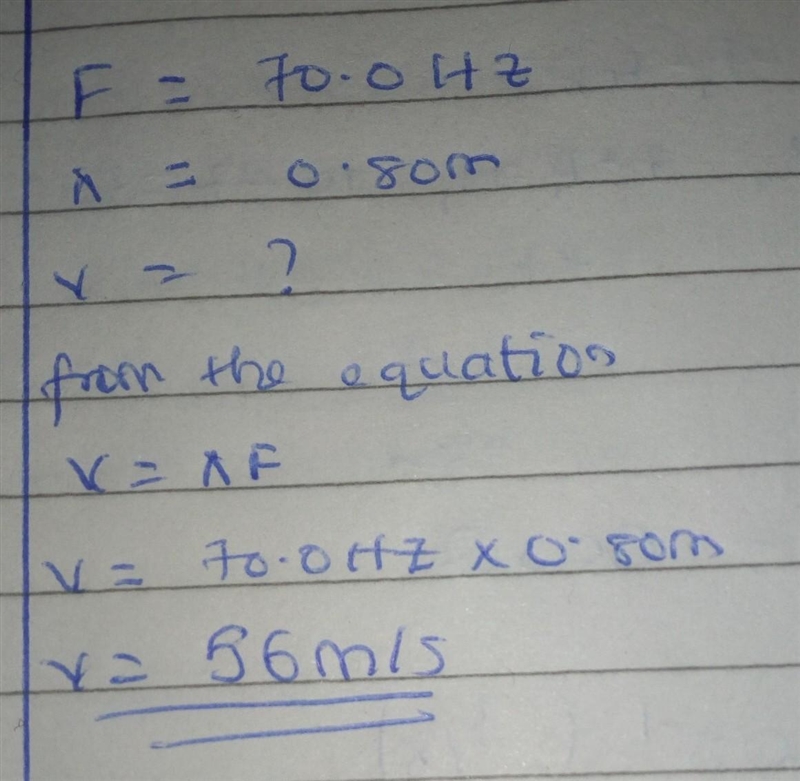 F = 70.0 Hz
λ = 0.80m
v = ?
from the equation
v = λF
v = 70.0Hz x 0.80m
v = 56m/s